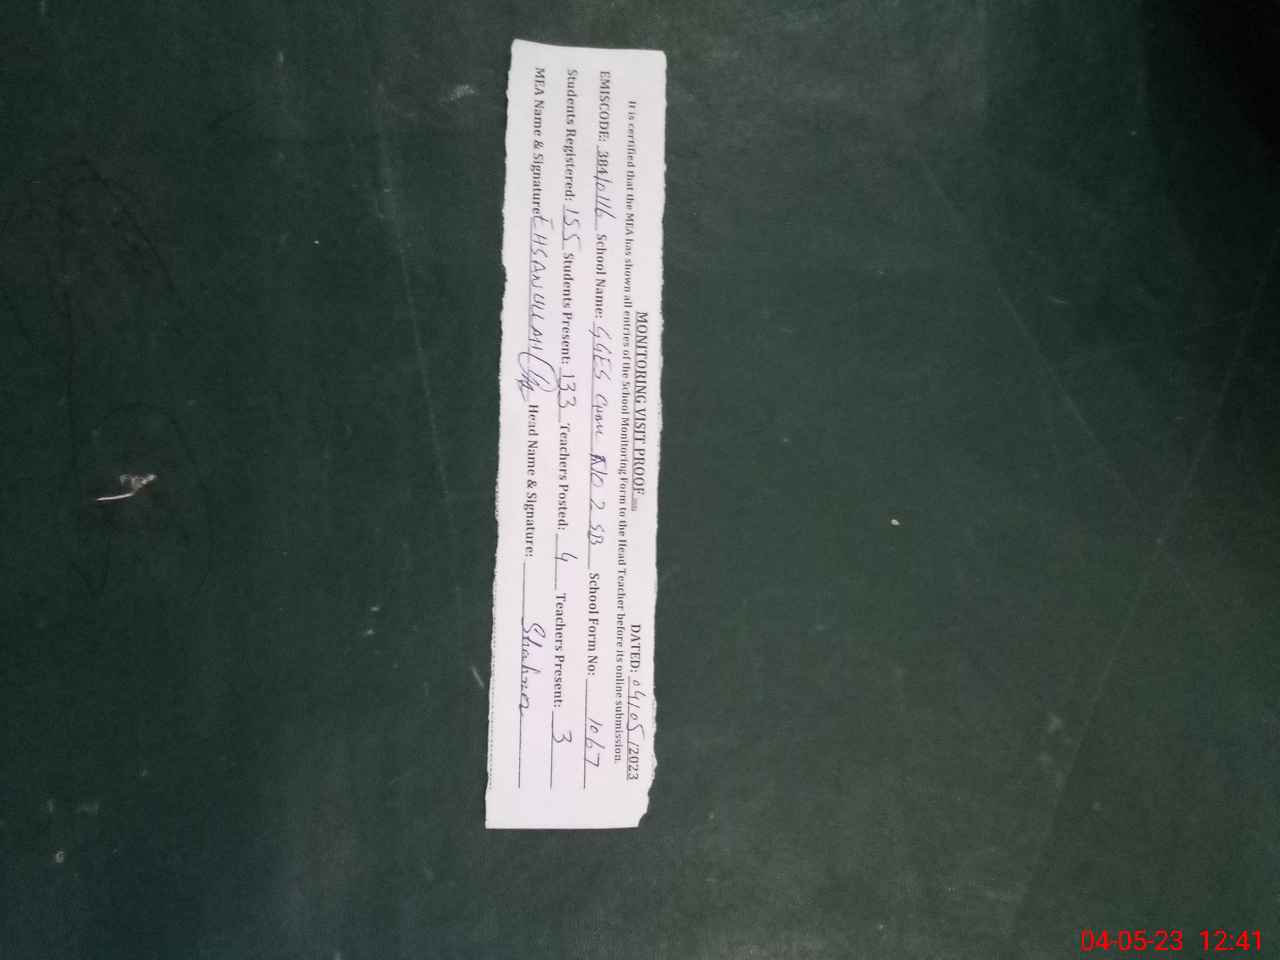 MONITORING VISIT PROOF
DATED: 04/05/2023
It is certified that the MEA has shown all entries of the School Monitoring Form to the Head Teacher before its online submission.
EMISCODE: School Name: GGES NO 2 SB School Form No: 1067
Students Registered: 155 Students Present: 133 Teachers Posted: 4 Teachers Present: 3
MEA Name & Signature: EHSANULLAH Head Name & Signature:
04-05-23 12:41